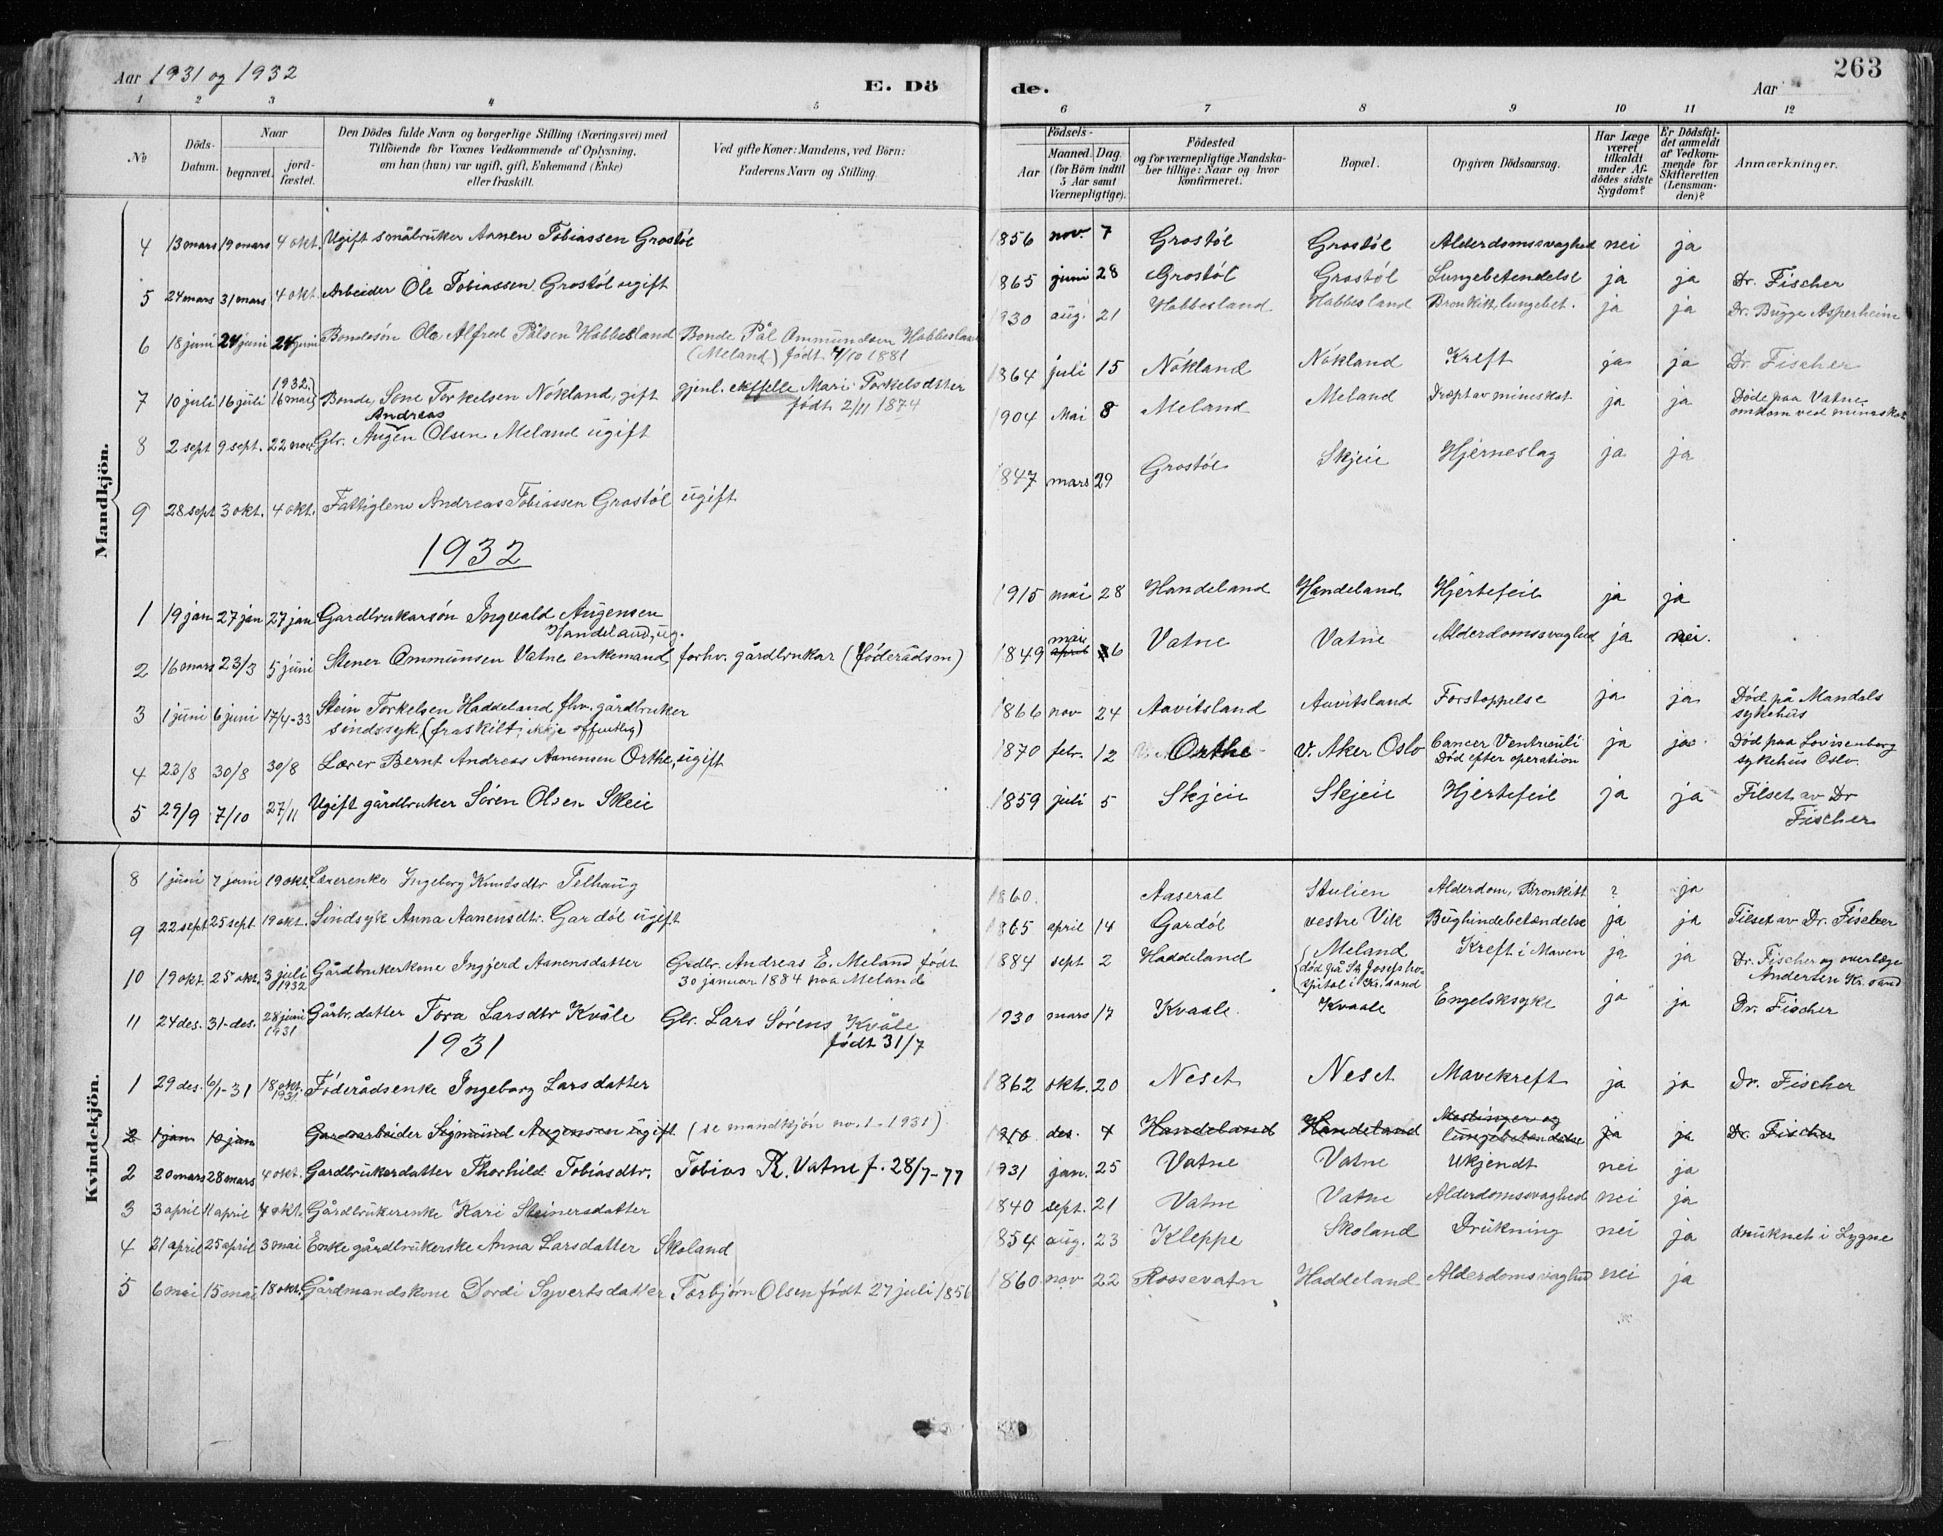 Aar 1931 og 1932 E. Dö de. Aar 263
1 2 3 4 5 6 7 8 9 10 11 12
No
Döds-Datum.
Naar
begravet.
jord-fæstet.
Den Dödes fulde Navn og borgerlige Stilling (Næringsvei) med
Tilföiende for Voxnes Vedkommende af Oplysning,
om han (hun) var ugift, gift, Enkemand (Enke)
eller fraskilt.
Ved gifte Koner: Mandens, ved Börn:
Faderens Navn og Stilling.
Födsels-
Aar
Maaned. Dag.
(for Börn indtil
5 Aar samt
Værnepligtige).
Födested
og for værnepligtige Mandska-
ber tillige: Naar og hvor
konfirmeret.
Bopæl.
Opgiven Dödsaarsag.
Har Læge
været
tilkaldt
under Af-
dödes sidste
Sygdom?
Er Dödsfal-
det anmeldt
af Vedkom-
mende for
Skifteretten
(Lensman-
den)?
Anmærkninger.
Mandkjön.
4 13 mars 19 mars 4 okt. Ugift småbruker Aanen Tobiassen Grostöl 1856 nov. 7 Grostöl Grostöl Alderdomssvaghed nei ja
5 24 mars 31 mars 4 okt Arbeider Ole Tobiassen Grostöl ugift 1865 juni 28 Grostöl Grostöl Lungebetendelse ja ja Dr. Fischer
6 18 juni 24 juni 24 juni Bondesön Ole Alfred Pålsen Habbesland Bonde Pål Ommundsen Habbesland 1930 aug. 21 Habbesland Habbesland Bronkitt, lungebet. ja ja Dr. Bugge Asperheim
(Meland) født 4/10 1881
7 10 juli 16 juli 1932. 16 mai Bonde, Sone Torkelsen Nökland, gift gjenl. ektfelle Mari Torkelsdtter 1864 juli 15 Nökland Nökland Kreft ja ja Dr. Fischer
født 2/11 1874
8 2 sept 9 sept. 22 nov. Gbr. Andreas Augen Olsen Meland ugift 1904 Mai 8 Meland Meland Dræpt av mineskot ja ja Døde paa Vatne
omkom ved mineskot
9 28 sept 3 okt. 4 okt. Fattiglem Andreas Tobiassen Grostöl ugift 1847 mars 29 Grostöl Skjeie Hjerneslag ja ja
1932
1 19 jan 27 jan 27 jan Gardbrukarsön Ingvald Augensen 1915 mai 28 Handeland Handeland Hjertefeil ja ja
Handeland, ug.
2 16 mars 23/3 5 juni Stener Ommunsen Vatne enkemand, forhv. gårdbrukar (føderådsm) 1849 april 6 Vatne Vatne Alderdomssvaghed ja nei.
3 1 juni 6 juni 17/4-33 Stein Torkelsen Haddeland fhv. gårdbruker 1866 nov 24 Aavitsland Aavitsland Forstoppelse ja ja Døde på Mandals
sindssyk (fraskilt, ikkje offentlig) sykehus
4 23/8 30/8 30/8 Lærer Bernt Andreas Aanensen Orthe, ugift 1870 febr. 12 Orthe V. Aker Oslo Cancer Ventriculi ja ja Død paa Lovisenberg
Død efter operation sykehus Oslo.
5 29/9 7/10 27/11 Ugift gårdbruker Sören Olsen Skeie 1859 juli 5 Skjeie Skjeie Hjertefeil ja ja Tilset av Dr
Fischer
Kvindekjön.
8 1 juni 7 juni 19 okt. Lærerenke Ingeborg Knutsdtr Telhaug 1860. Aaseral Stulien Alderdom, Bronkitt ? ja
9 22 sept 25 sept 19 okt. Sindsyk Anna Aanensdtr. Gardöl ugift 1865 april 14 Gardöl vestre Vik Bughindebetændelse ja ja Tilset av Dr. Fischer
10 19 okt. 25 okt. 3 juli 1932 Gårdbrukerkone Ingjerd Aanensdatter Grdbr. Andreas E. Meland født 1884 sept 2 Haddeland Meland Kreft i Maven ja ja Dr. Fischer og overlæge
30 januar 1884 paa Meland død på St. Josephs ho-spital i Kr.sand Andersen Kr.sand
11 24 des. 31-des. 28 juni 1931 Gårbr.datter Tora Larsdtr Kvåle Gbr. Lars Sörens Kvåle 1930 mars 17 Kvaale Kvaale Engelsksyke ja ja Dr. Fischer
født 31/7
1931
1 29 des. 6/1-31 18 okt. 1931. Föderådsenke Ingeborg Larsdatter 1862 okt. 20 Neset Neset Mavekreft ja ja Dr. Fischer
2 1 jan 10 jan Gardsarbeider Sigmund Augensen ugift. (se mandkjön nr. 1 - 1931) 1910 des. 4 Handeland Handeland Meslinger og lungebetændelse ja ja Dr. Fischer
2 20 mars 28 mars 4 okt. Gardbrukerdatter Thorhild Tobiasdtr. Tobias R. Vatne f. 28/7-77 1931 jan. 25 Vatne Vatne Ukjendt nei ja
3 3 april 11 april 4 okt. Gårdbrukerenke Kari Steinersdatter 1840 sept. 21 Vatne Vatne Alderdomssvaghed nei ja
4 21 april 25 april 3 mai Enke gårdbrukerske Anna Larsdatter Skoland 1854 aug. 23 Kleppe Skoland Drukning nei ja druknet i Lygne
5 6 mai 15 mai 18 okt. Gårdmandskone Dordi Syvertsdatter Torbjørn Olsen født 27 juli 1856 1860 nov 22 Rossevatn Haddeland Alderdomssvaghed nei ja